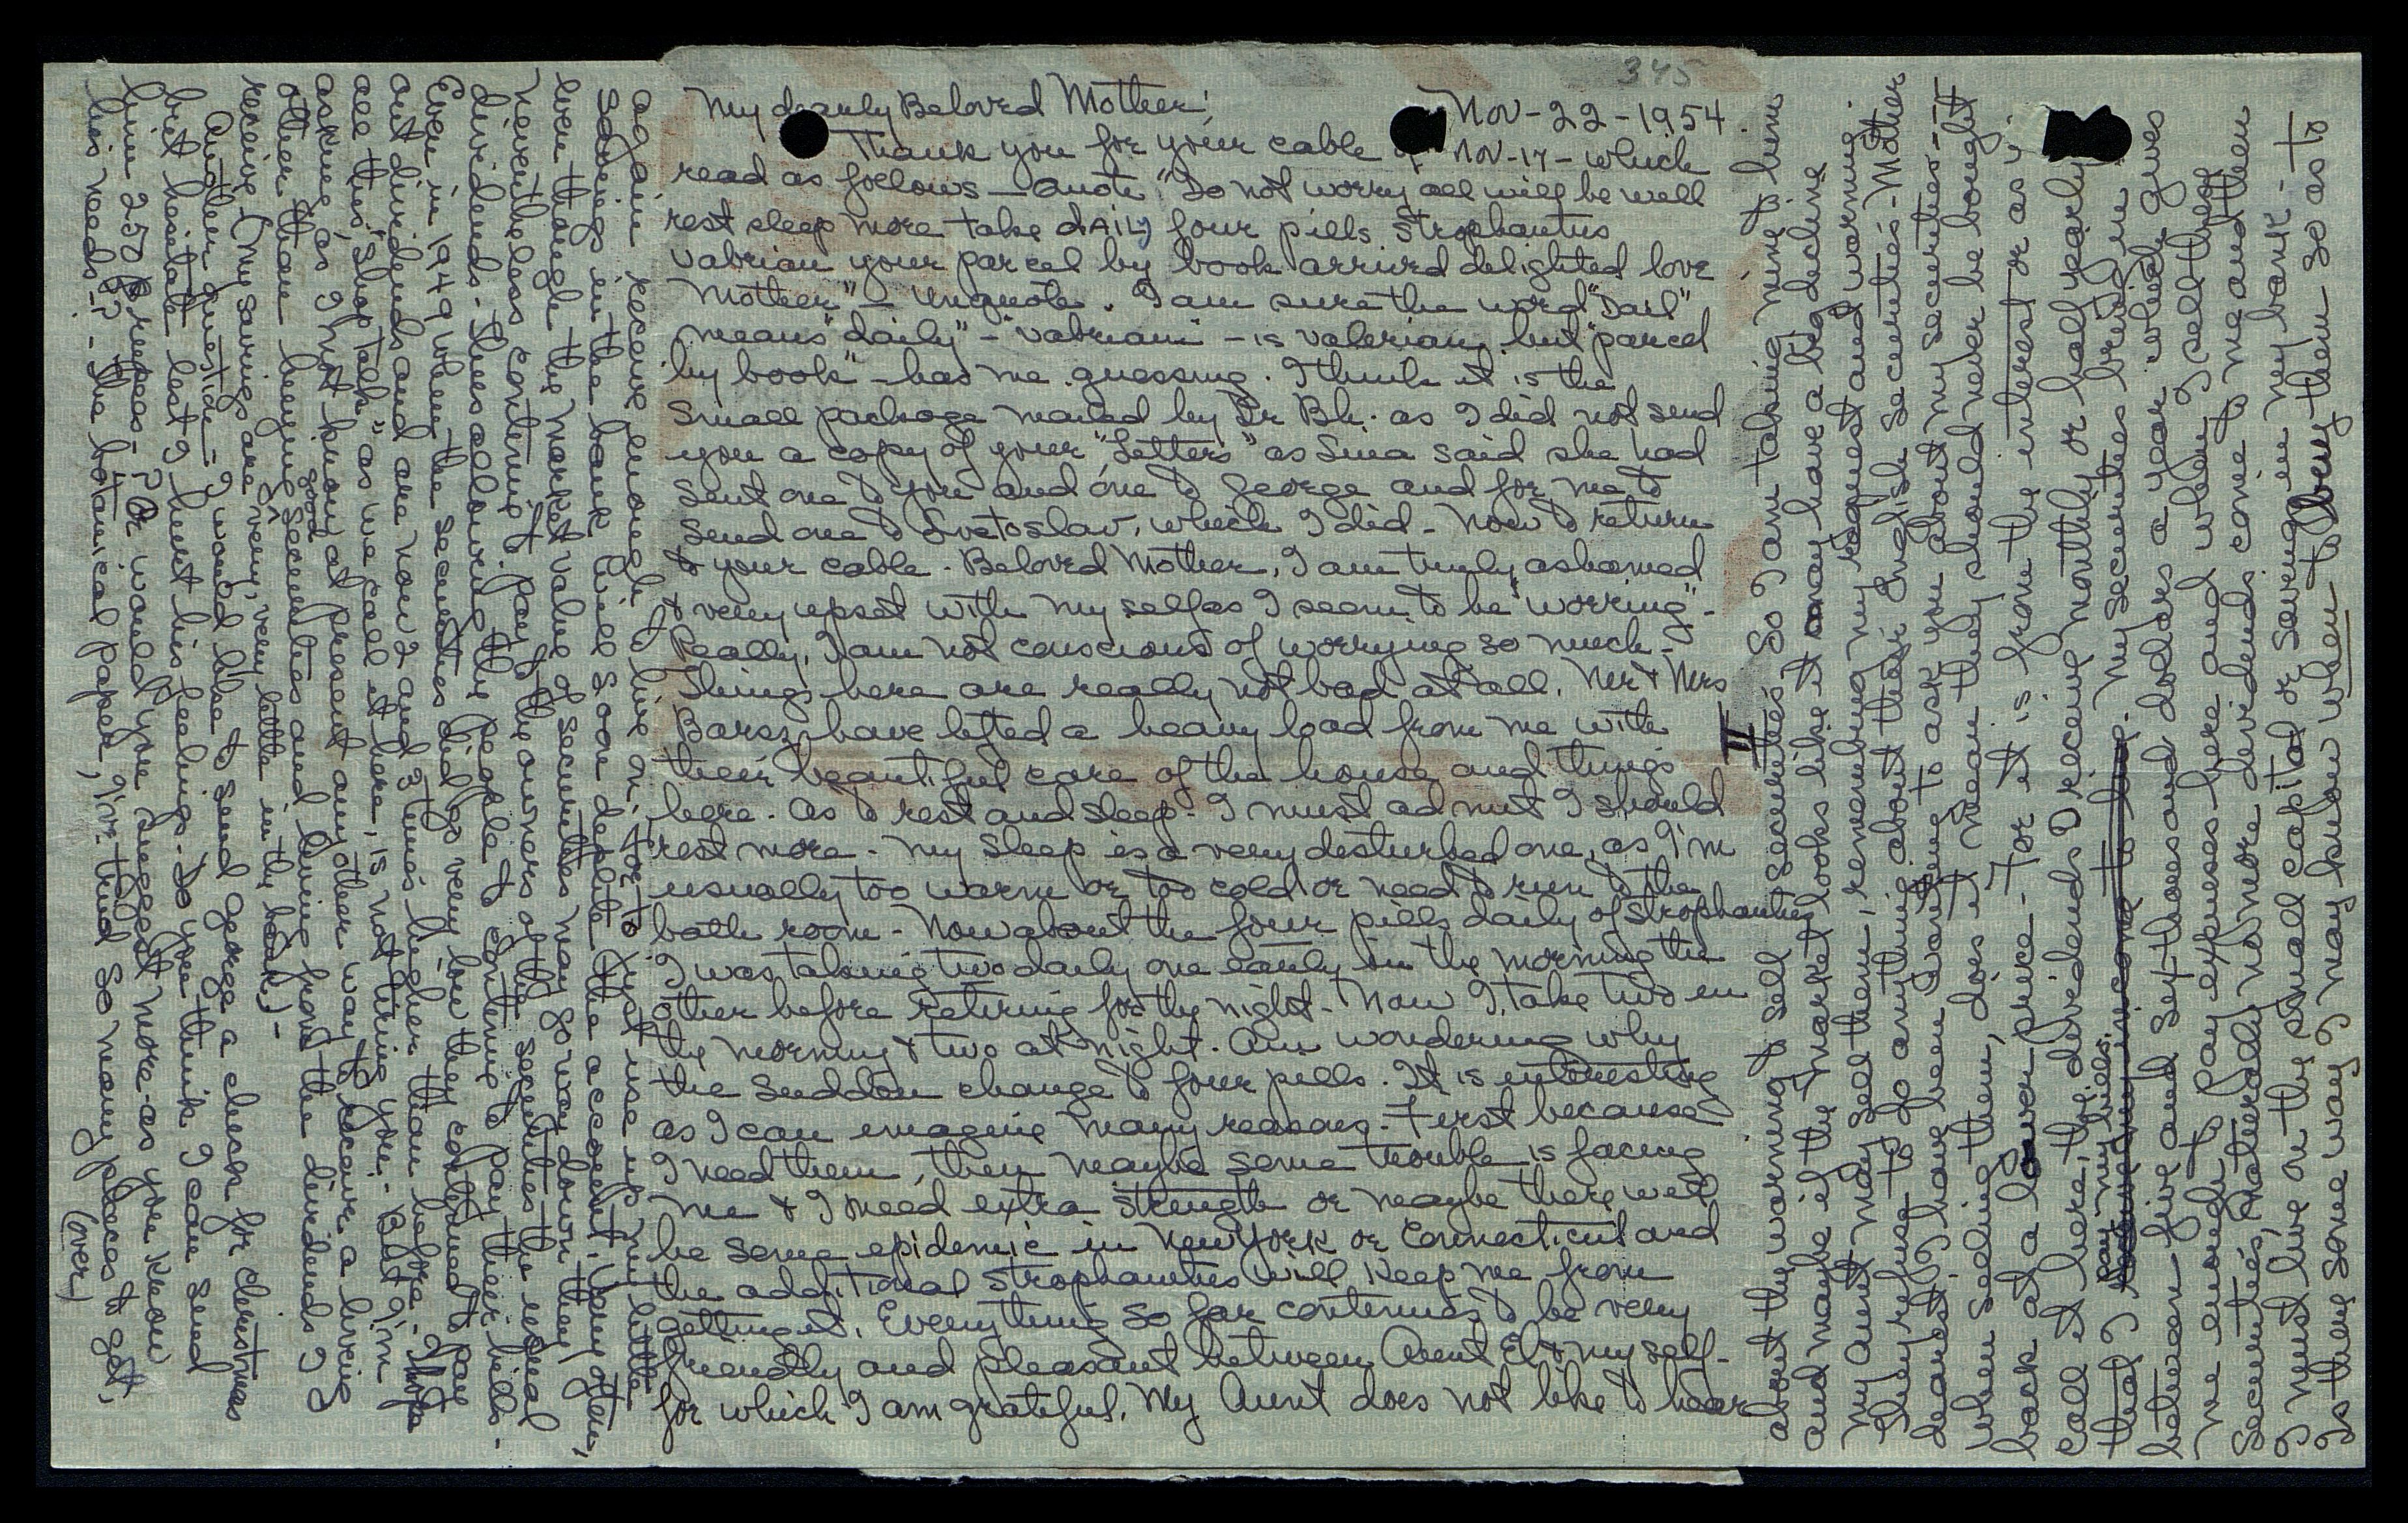 345
My dearly Beloved Mother! Nov-22-1954.
Thank you for your cable of Nov-17- which
read as follows - Quote "Do not worry all will be well
rest sleep more take dAILy four pills Strophantus
Vabrian your parcel by book arrived delighted love
Mother" - Unquote. I am sure the word "Dail"
means "daily" - "vabriani" - is valerian, but "parcel
by book" - has me guessing. I think it is the
small package mailed by Dr Bh. as I did not send
you a copy of your "Letters" as Sina said she had
sent one to you and one to George and for me to
send one to Svetoslav, which I did - Now to return
to your cable. Beloved Mother, I am truly ashamed
& very upset with my self as I seem to be "worring" -
Really, I am not conscious of worrying so much -
Things here are really not bad at all. Mr & Mrs
Barsz have lifted a heavy load from me with
their beautiful care of the house and things
here. As to rest and sleep - I must admit I should
rest more - My sleep is a very disturbed one, as I'm
usually too warm or too cold or need to run to the
bath room - Now about the four pills daily of Strophantus
I was taking two daily one early in the morning the
other before retiring for the night - Now I take two in
the morning & two at night. Am wondering why
the sudden change to four pills. It is interesting
as I can imagine many reasons - First because
I need them, then maybe some trouble is facing
me & I need extra strength or maybe there will
be some epidemic in New York or Connecticut and
the additional Strophantus will keep me from
getting it. Everything so far continues to be very
friendly and pleasant between Aunt El & my self -
for which I am grateful. My Aunt does not like to hear
II
about the warning to sell securities. So I am taking mine to him
and maybe if the market looks like it may have a big decline
my aunt may sell them, remembering my request and warning.
They refuse to do anything about their English securities - Mother
dearest, I have been wanting to ask you about my securities --
when selling them, does it mean they should never be bought
back at a lower price - For it is from the interest or as v.
call it here, the dividends I receive monthly or half yearly
that I pay my bills. My securities bring in
between five and six thousand dollars a year which gives
me enough to pay expenses here and when I sell these
securities, naturally no more dividends come to me and then
I must live on the small capital or savings in my bank - to
Is there some way I may know when to buy them so as to
again receive enough to live on, for to just use up my little
savings in the bank will soon deplete the account. Very often,
even though the market value of securities may go way down they
nevertheless continue to pay to the owners of the securities the usual
dividends - thus allowing the people to continue to pay their bills.
Even in 1949 when the securities did go very low they continued to pay
out dividends and are now 2 and 3 times higher than before - I hope
all this, "shop talk" as we call it here, is not tiring you - But I'm
asking as I not know at present any other way to receive a living
other than buying good securities and living from the dividends I
receive - (My savings are very, very little in the bank) -
Another question - I would like to send George a check for Christmas
but hesitate lest I hurt his feelings - Do you think I can send
him 250 rupees -? Or would you suggest more - as you know
his needs -? - The botanical paper, I've tried so many places to get,
(over)